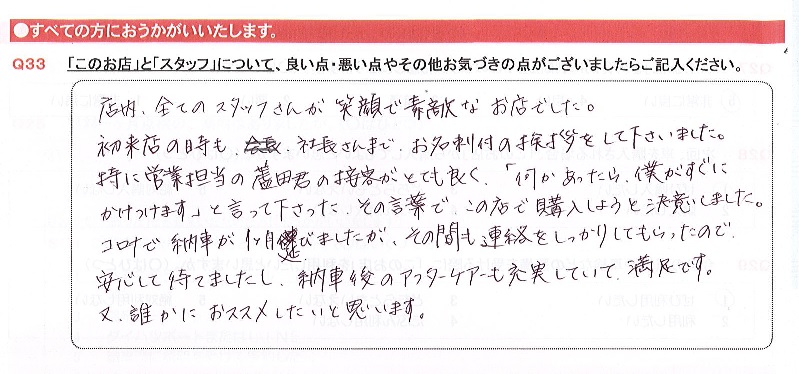 ●すべての方におうかがいいたします。
Q33 「このお店」と「スタッフ」について、良い点・悪い点やその他お気づきの点がございましたらご記入ください。
店内、全てのスタッフさんが笑顔で素敵なお店でした。
初来店の時も、社長さんまで、お名刺付の挨拶をして下さいました。
特に営業担当の薗田君の接客がとても良く、「何かあったら、僕がすぐに
かけつけます」と言って下さった、その言葉で、この店で購入しようと決意しました。
コロナで納車が1ヶ月遅びましたが、その間も連絡をしっかりしてもらったので、
安心して待てましたし、納車後のアフターケアーも充実していて、満足です。
又、誰かにおススメしたいと思います。